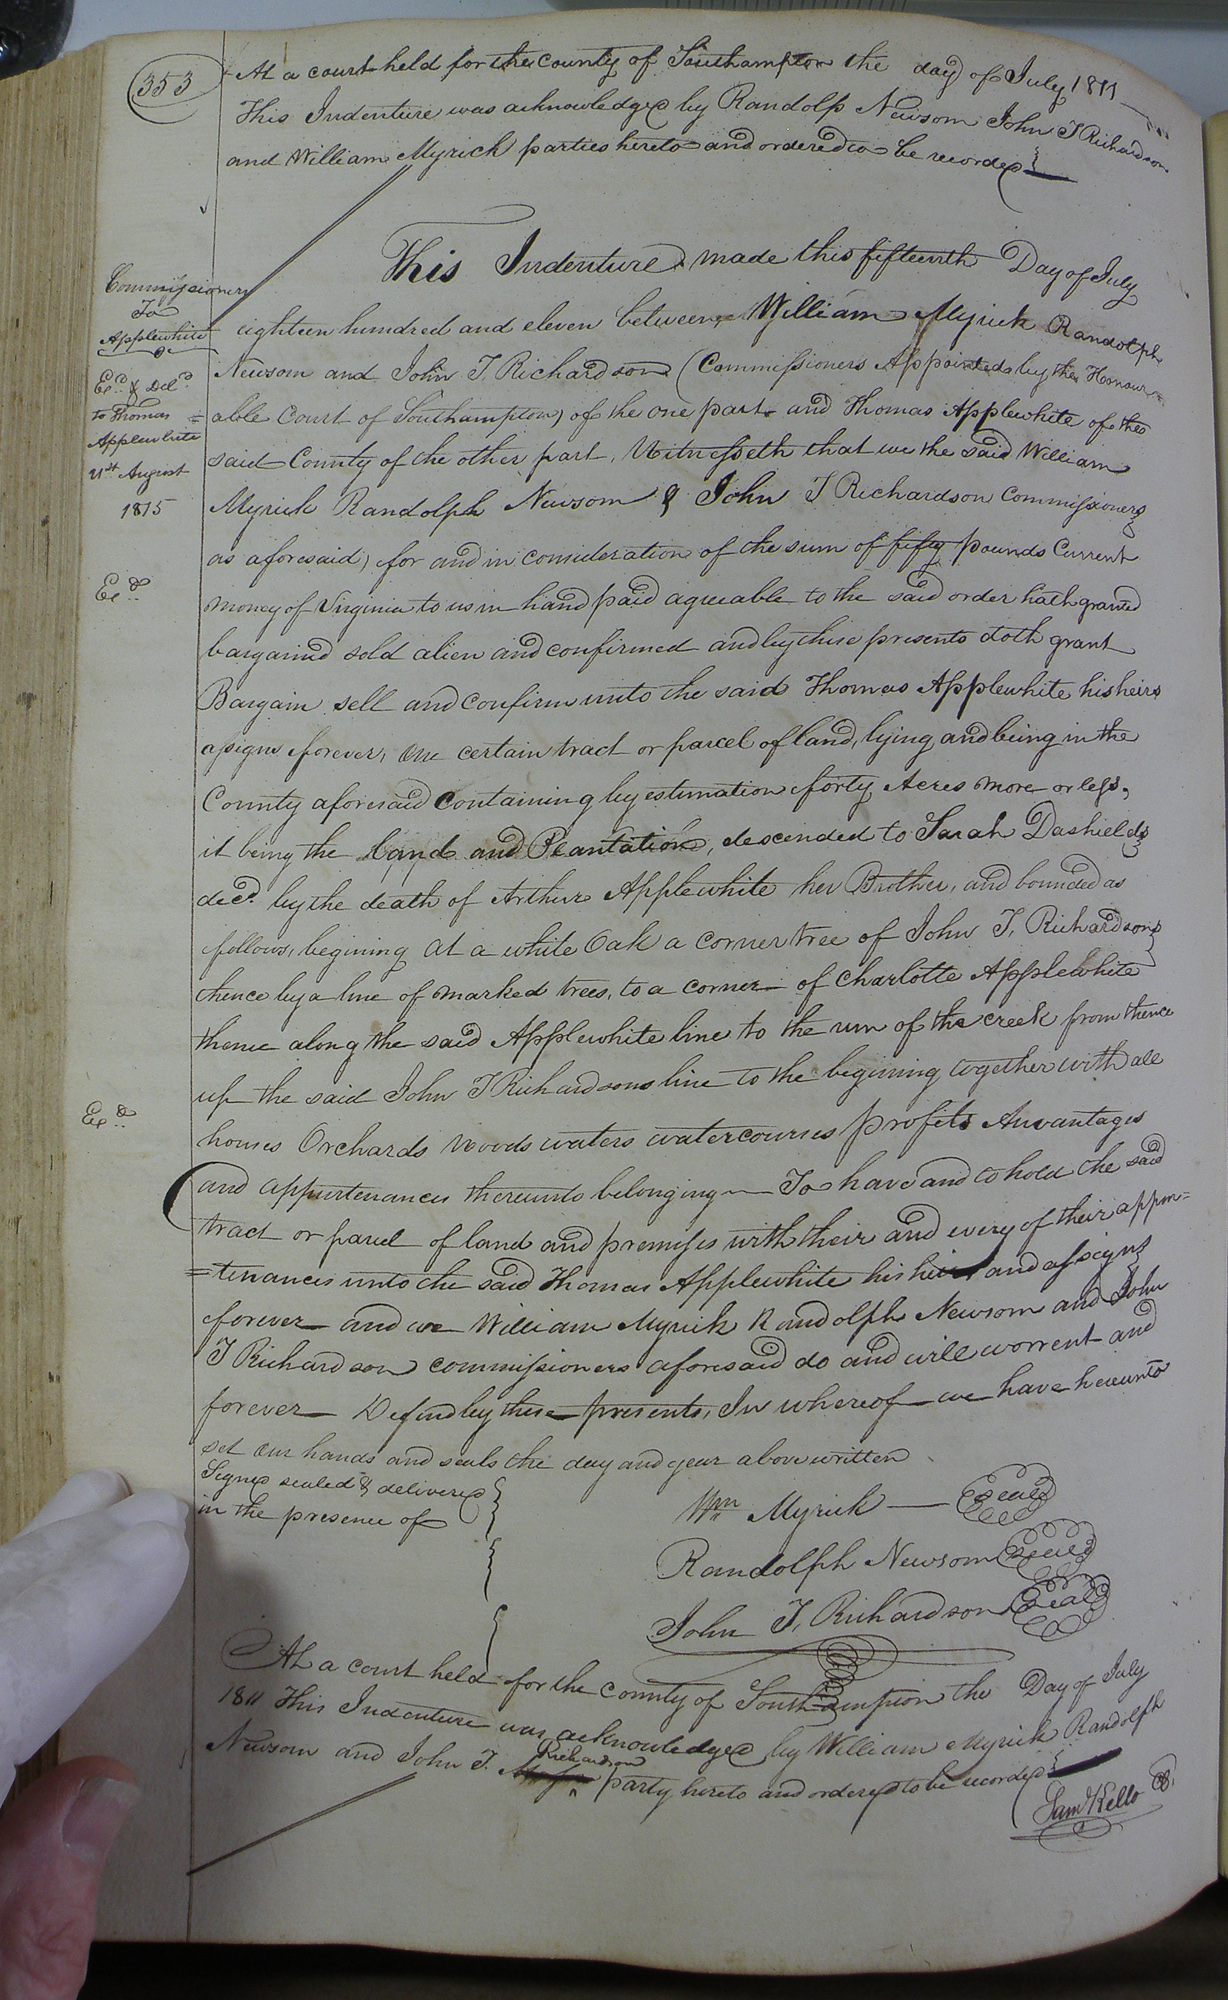 353
At a court held for the county of Southampton the day of July 1811
This Indenture was acknowledged by Randolp Newsom John T Richardson
and William Myrick parties hereto and ordered to be recorded
Commissioners
To
Applewhite
Exd & Deld
to Thomas
Applewhite
21st August
1815
Exd
Exd
This Indenture made this fifteenth Day of July
eighteen hundred and eleven between William Myrick Randolph
Newsom and John T. Richardson (Commissioners Appointed by the Honour=
able Court of Southampton) of the one part and Thomas Applewhite of the
said County of the other part, Witnesseth that we the said William
Myrick Randolph Newsom & John T Richardson Commissioners
as aforesaid, for and in consideration of the sum of fifty pounds Current
money of Virginia to us in hand paid agreeable to the said order hath granted
bargained sold alien and confirmed and by these presents doth grant
Bargain sell and confirm unto the said Thomas Applewhite his heirs
assigns forever, one certain tract or parcel of land, lying and being in the
County aforesaid containing by estimation forty Acres more or less,
it being the Land and Plantation, descended to Sarah Dashields
decd. by the death of Arthur Applewhite her Brother, and bounded as
follows, begining at a white Oak a corner tree of John T. Richardsons
thence by a line of marked trees, to a corner of Charlotte Applewhite
thence along the said Applewhite line to the run of the creek from thence
up the said John T Richardsons line to the begining together with all
houses Orchards woods waters watercourses profits Auvantages
and appurtenances thereunto belonging — To have and to hold the said
tract or parcel of land and premises with their and every of their appur=
=tenances unto the said Thomas Applewhite his heirs and assigns
forever and we William Myrick Randolph Newsom and John
T Richardson commissioners aforesaid do and will worrent and
forever Defind by these presents, In whereof we have hereunto
set our hands and seals the day and year above written
Signed sealed & delivered
in the presence of
Wm Myrick — seal
Randolph Newsom seal
John T. Richardson seal
At a court held for the county of Southampton the Day of July
1811 This Indenture was acknowledged by William Myrick Randolph
Newsom and John T. Richardson party hereto and ordered to be recorded
Saml Kello